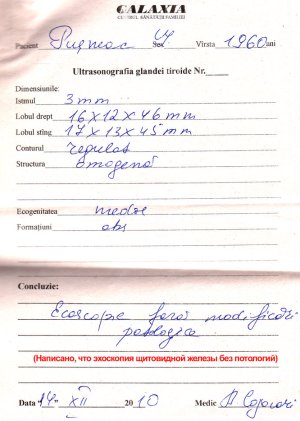 GALAXIA
CENTRUL SĂNĂTĂȚII FAMILIEI
Pacient Sex Vîrsta 1960 ani
Ultrasonografia glandei tiroide Nr.
Dimensiunile:
Istmul 3 mm
Lobul drept 16 x 12 x 46 mm
Lobul stîng 17 x 13 x 45 mm
Conturul regulat
Structura omogenă
Ecogenitatea medie
Formațiuni abs
Concluzie:
Ecoscopic fără modificări
patologice
(Написано, что эхоскопия щитовидной железы без потологий)
Data 14 XII 2010 Medic